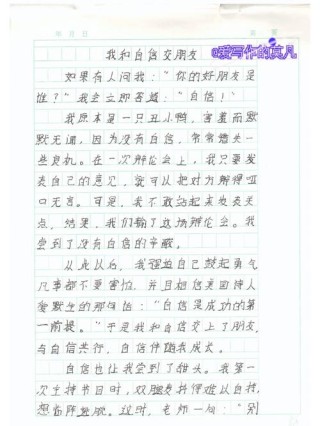 @爱写作的英儿
年 月 日
我和自信交朋友
如果有人问我：“你的好朋友是
谁？”我会立即答道：“自信！”
我原本是一只丑小鸭，害羞而默
默无闻，因为没有自信，常常错失一
些良机。在一次辩论会上，我只要发
表自己的意见，就可以把对方辩得哑
口无言。可是，我不敢站起来发表观
点，结果，我们输了这场辩论会。我
尝到了没有自信的辛酸。
从此以后，我强迫自己鼓起勇气，
凡事都不要害怕，并且相信美国诗人
爱默生的那句话：“自信是成功的第
一前提。”于是我和自信交上了朋友，
与自信共行，自信伴随我成长。
自信也让我尝到了甜头。我第一
次主持节目时，双腿发抖得难以自持，
想临阵脱逃。这时，老师一句：“别